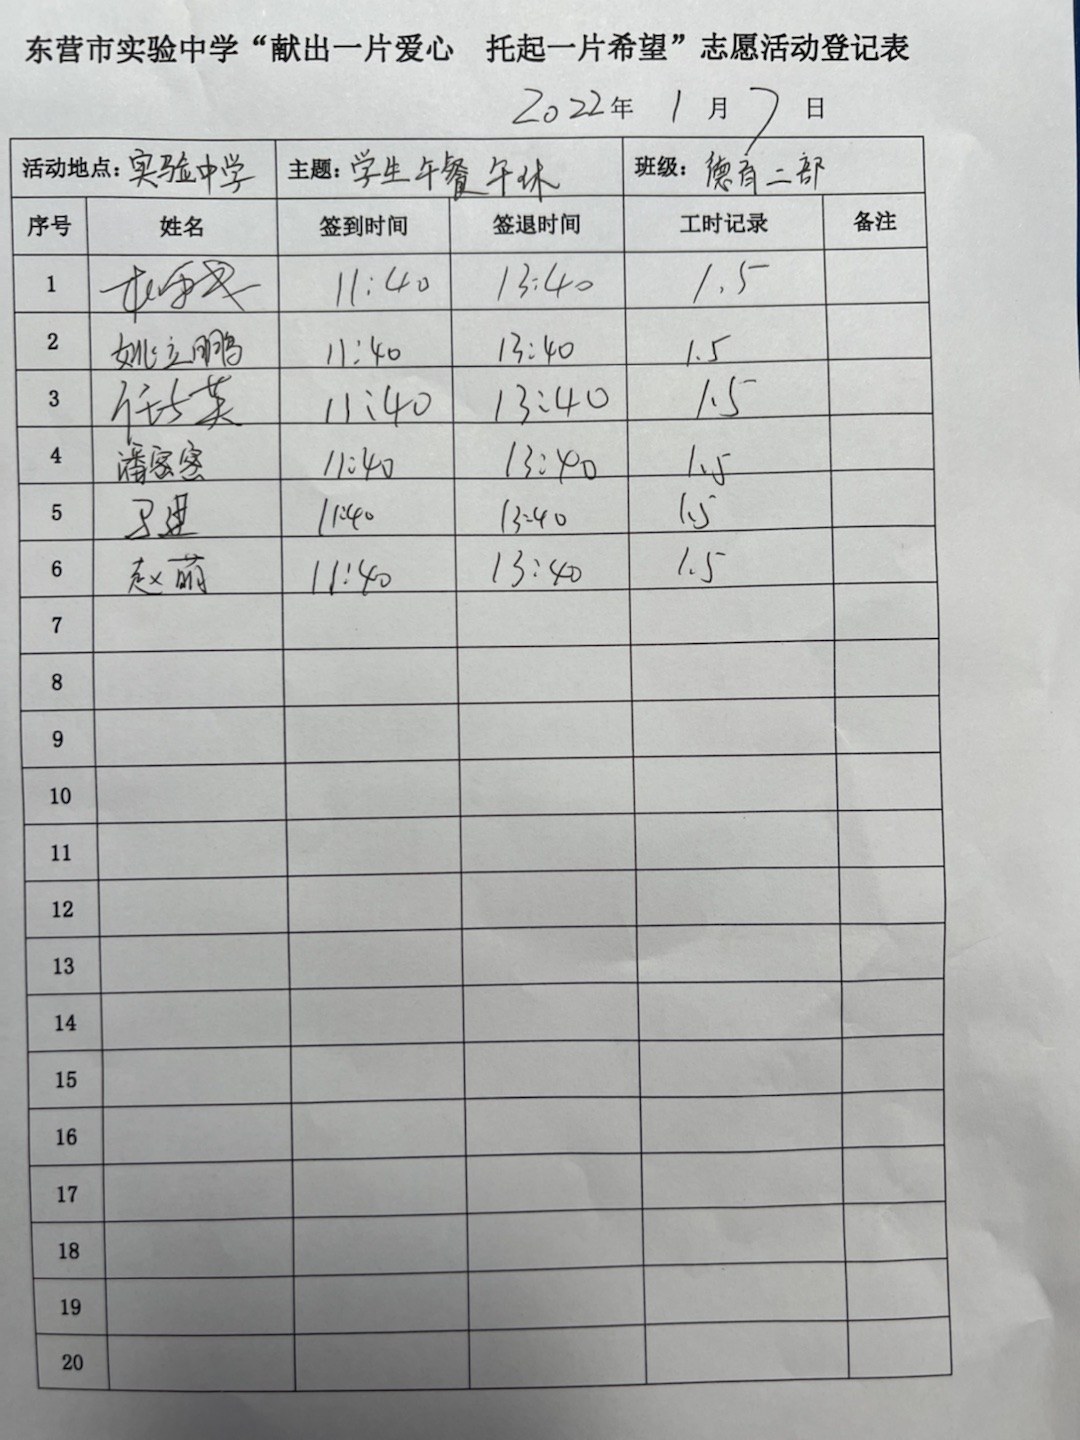 东营市实验中学“献出一片爱心 托起一片希望”志愿活动登记表
2022年 1月 7日
活动地点：实验中学 主题：学生午餐 午休 班级：德育二部
序号 姓名 签到时间 签退时间 工时记录 备注
1 11:40 13:40 1.5
2 姚立鹏 11:40 13:40 1.5
3 11:40 13:40 1.5
4 潘密密 11:40 13:40 1.5
5 11:40 13:40 1.5
6 赵萌 11:40 13:40 1.5
7
8
9
10
11
12
13
14
15
16
17
18
19
20